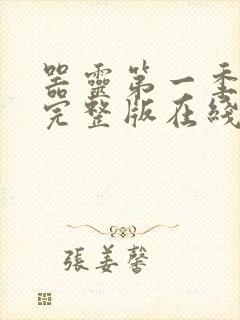 器靈第一季
完整版在綫
張姜馨